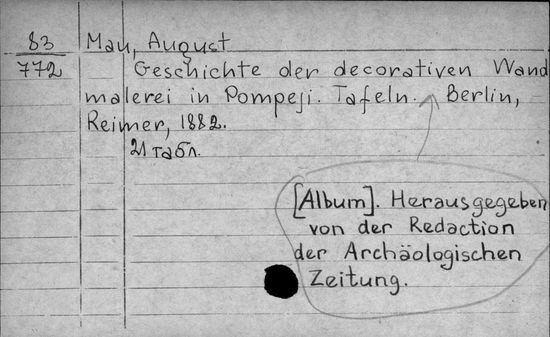 83 Mau, August
772 Geschichte der decorativen Wand
malerei in Pompeji. Tafeln. Berlin,
Reimer, 1882.
21 табл.
[Album]. Herausgegeben
von der Redaction
der Archäologischen
Zeitung.